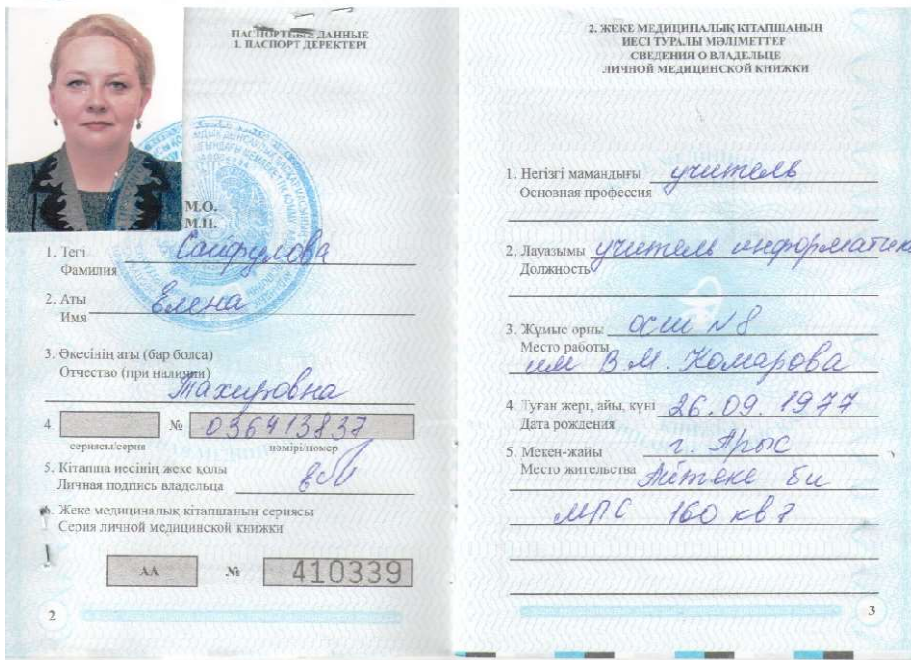 ПАСПОРТНЫЕ ДАННЫЕ
1. ПАСПОРТ ДЕРЕКТЕРІ
М.О.
М.П.
1. Тегі Сайфулова
Фамилия
2. Аты Елена
Имя
3. Әкесінің аты (бар болса)
Отчество (при наличии)
Тахировна
4. № 036413837
сериясы/серия нөмірі/номер
5. Кітапша иесінің жеке қолы
Личная подпись владельца
6. Жеке медициналық кітапшаның сериясы
Серия личной медицинской книжки
АА № 410339
2
2. ЖЕКЕ МЕДИЦИНАЛЫҚ КІТАПШАНЫҢ
ИЕСІ ТУРАЛЫ МӘЛІМЕТТЕР
СВЕДЕНИЯ О ВЛАДЕЛЬЦЕ
ЛИЧНОЙ МЕДИЦИНСКОЙ КНИЖКИ
1. Негізгі мамандығы учитель
Основная профессия
2. Лауазымы учитель информатики
Должность
3. Жұмыс орны ОСШ N 8
Место работы
им В.М. Комарова
4. Туған жері, айы, күні 26.09.1977
Дата рождения
5. Мекен-жайы г. Арыс
Место жительства Айтеке би
МПС 160 кв 7
3